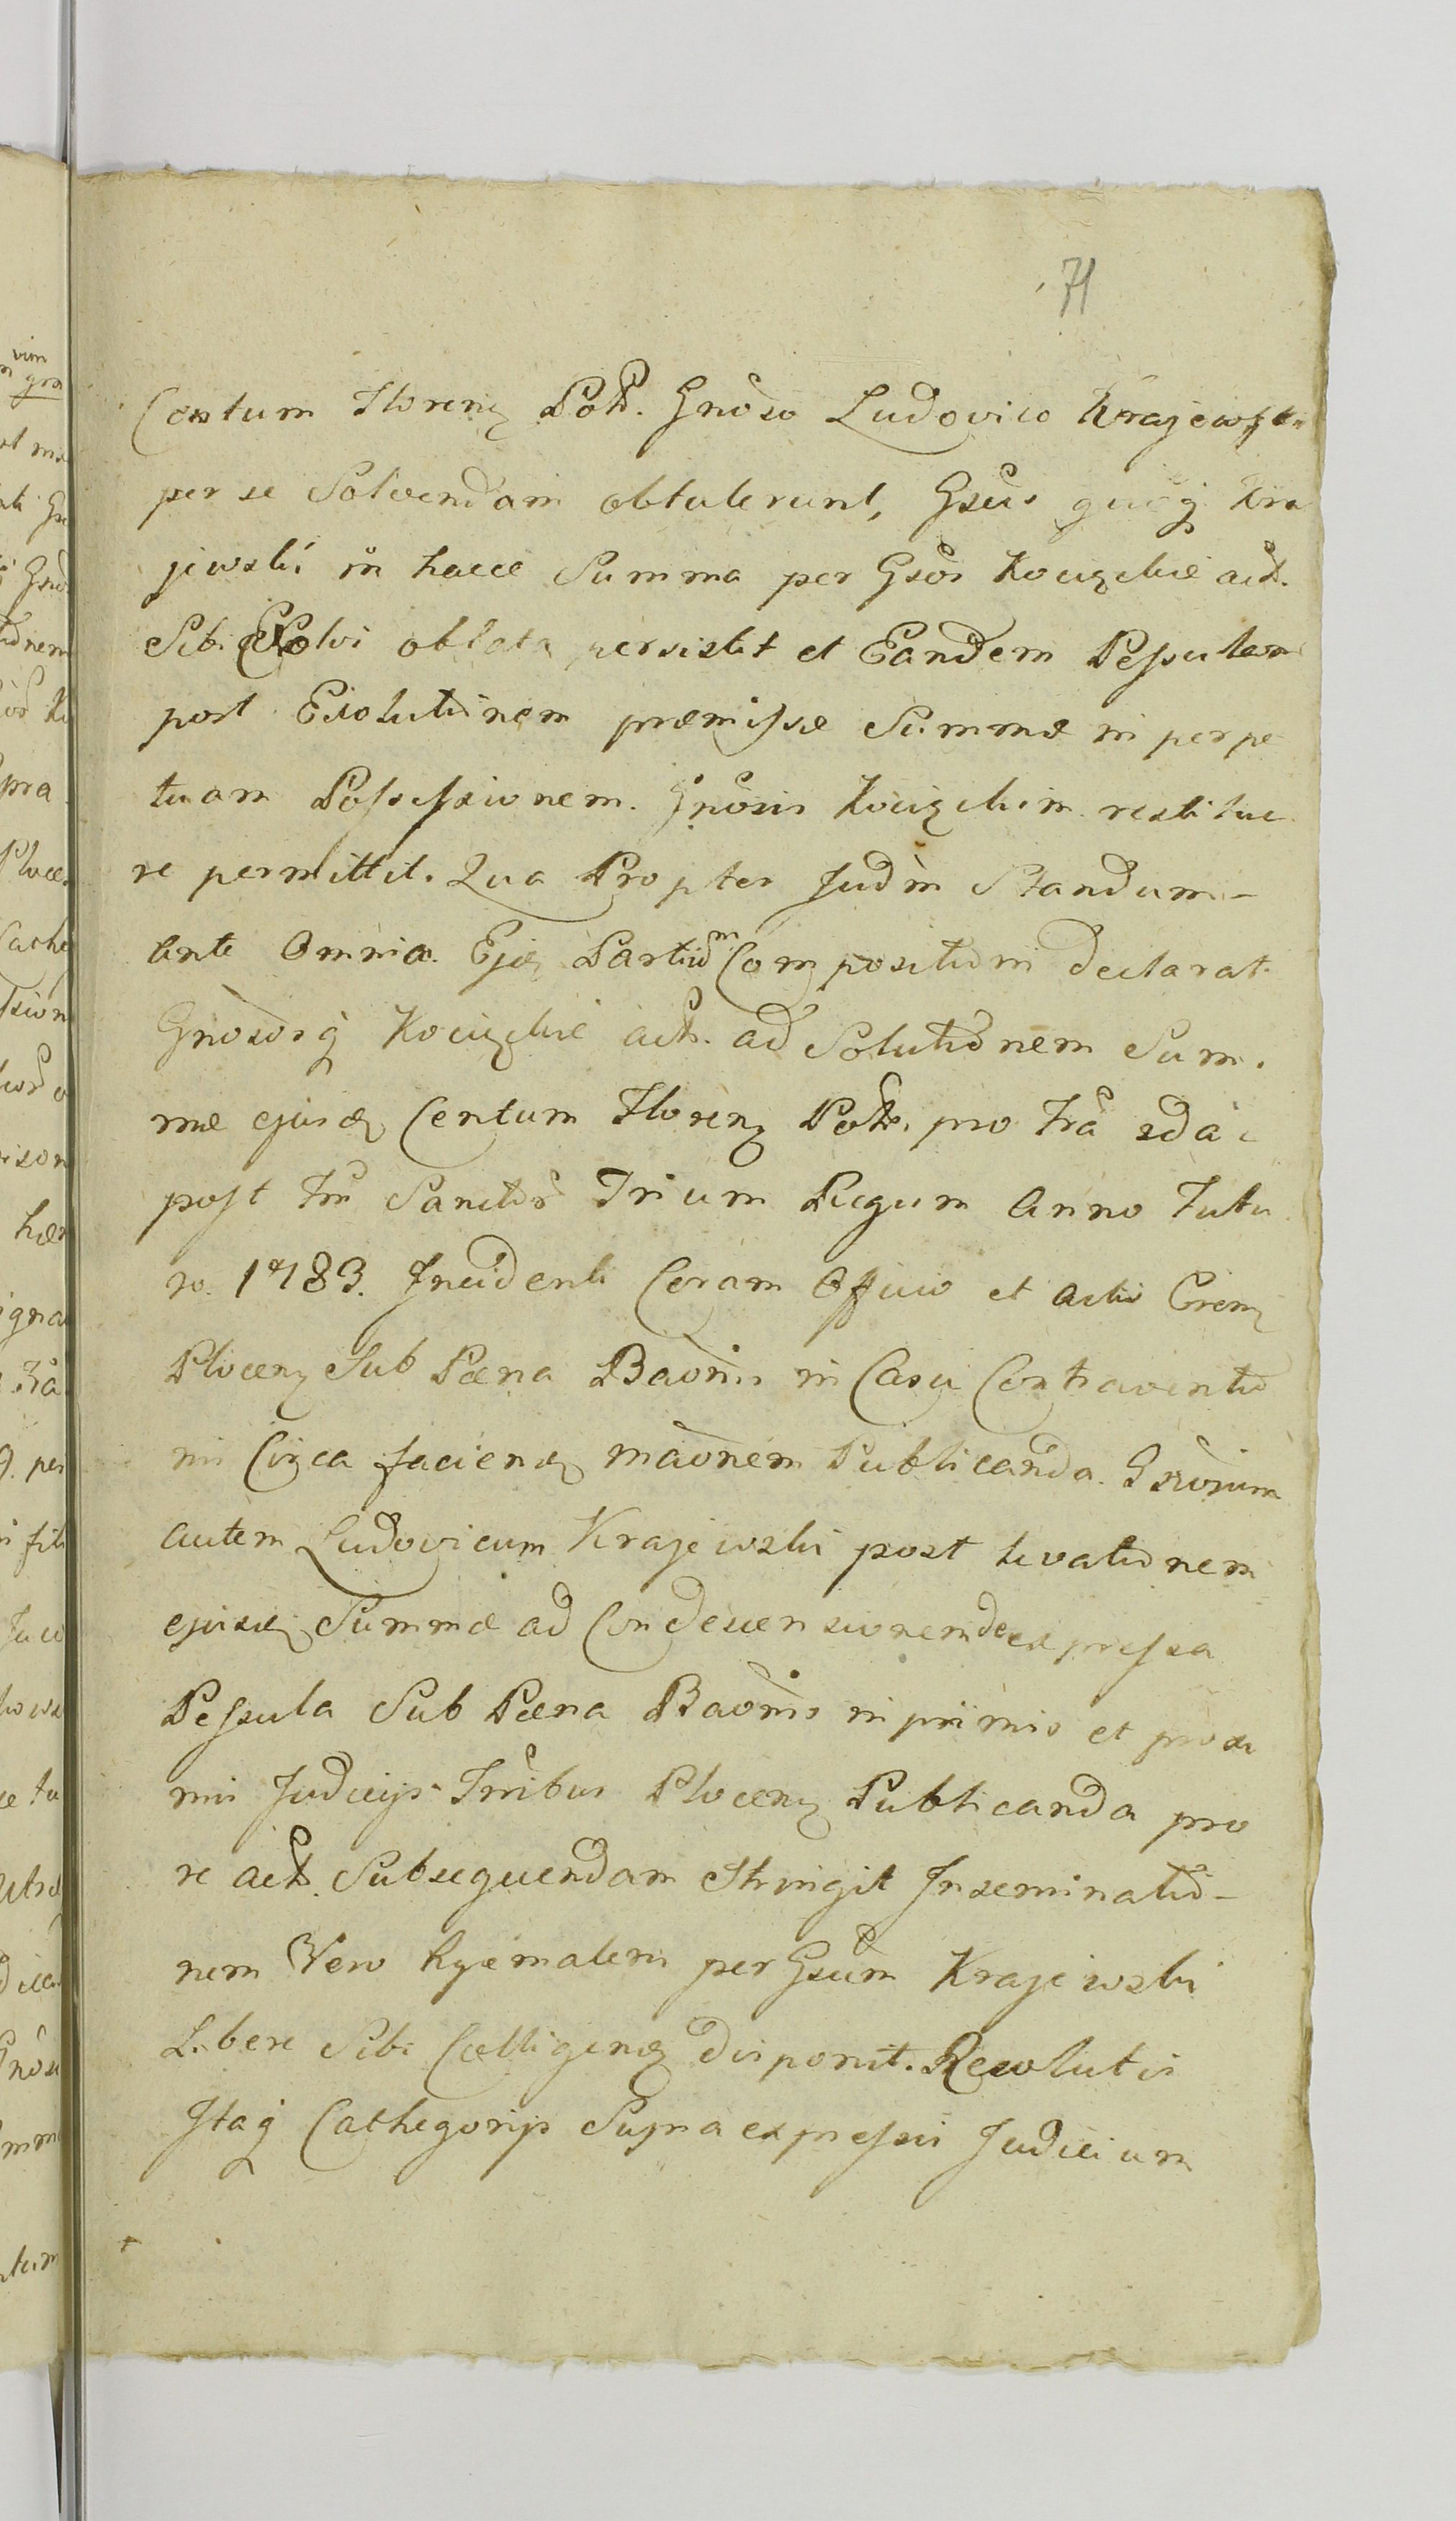 71
Centum Florenz Polł. Gnoso Ludovico Krajewski
per se Solvendam obtulerunt, Gsus quoq Kra
jewski in hacce Summa per Gsos Kocięckie act.
Sibi Exolvi oblata persistit et Eandem Pessulam
post Exolutionem præmissæ Summæ in perpe
tuam Possessionem. Gnosis Kocięckim restitue
re permittit. Qua Propter Judm Standum -
ante Omnia Ejq Partium Compositioni declarat.
Gnososq Kocięckie act. ad Solutionem Sum.
mæ ejusdz Centum Florenz Polł. pro fra sda
post fm Sanctor Trium Regum Anno futu
ro. 1783. Incidenti Coram Officio et Actis Crem
Plocenz Sub Pæna Baonis in Casu Contraventio
nis Circa faciendz maonem Publicanda. Gsorum
autem Ludovicum Krajewski post levationem
ejusdz Summæ ad Condescensionem de expressa
Pessula Sub Pæna Baonis in primis et proxi
mis Judicijs Tmibus Plocenz Publicanda pro
re act. Subsequendam Stringit Inseminatio -
nem Vero hyemalem per Gsum Krajewski
Libere Sibi Colligendz disponit. Resolutis
Itaq Cathegorijs Supra expressis Judicium